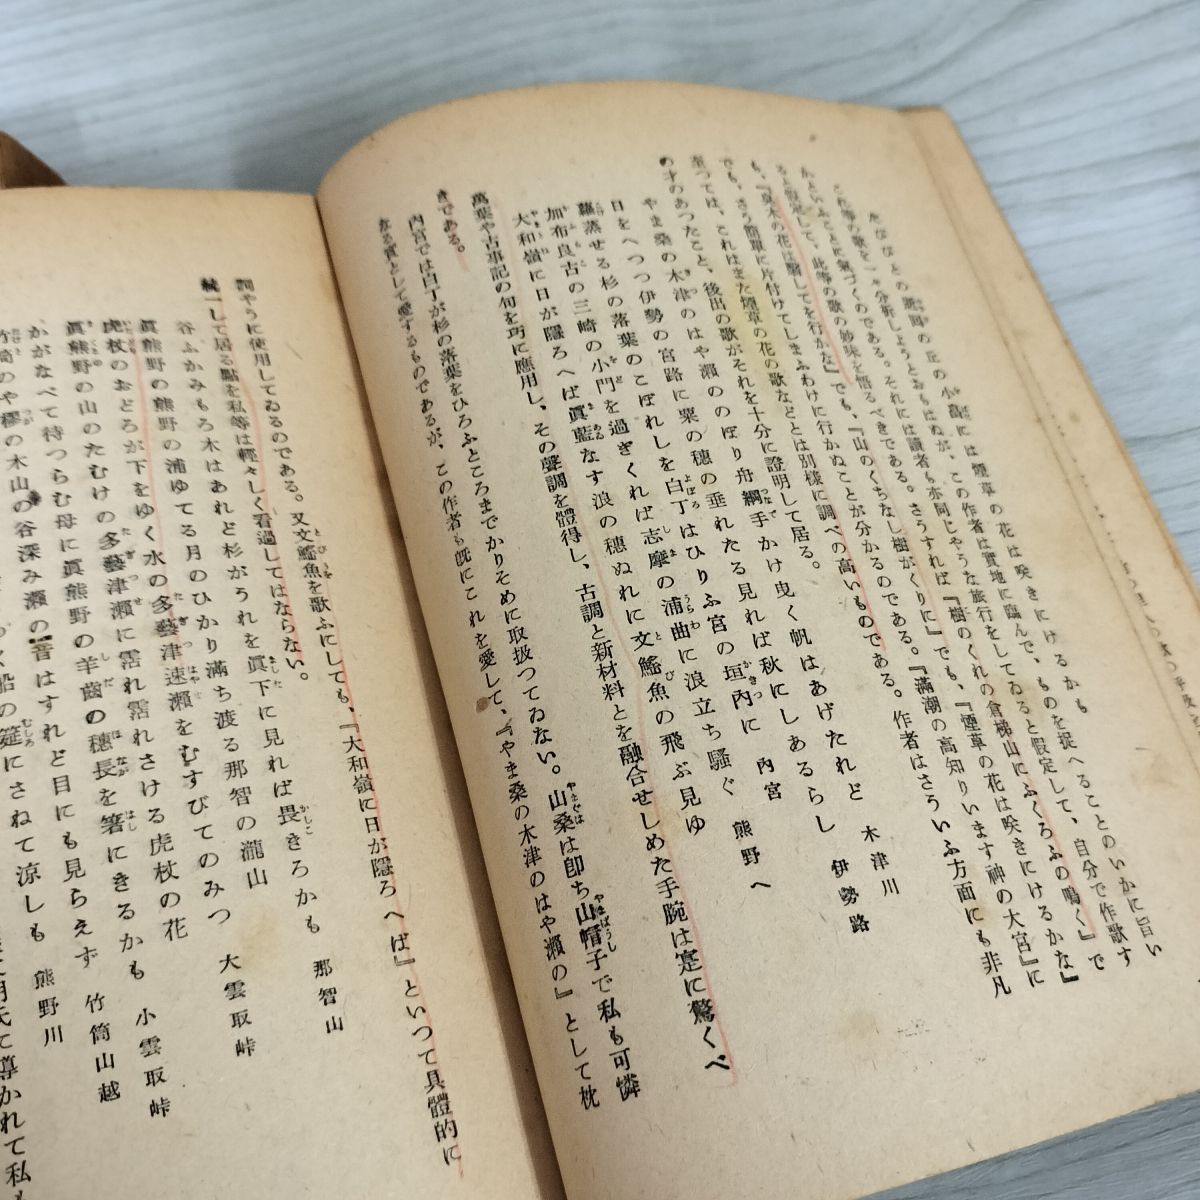 かななとの延岡の丘の小畠には煙草の花は咲きにけるかも
これ等の歌を一々分析しようとおもはぬが、この作者は實地に臨んで、ものを捉へることのいかに旨い
かといふことに氣づくのである。それには讀者も亦同じやうな旅行をしてゐると假定して、自分で作歌す
ると假定して、此等の歌の妙味を悟るべきである。さうすれば『樹のくれの倉梯山にふくろふの鳴く』で
も、『臭木の花は翳してを行かな』でも、『山のくちなし樹がくりに』でも、『煙草の花は咲きにけるかな』
でも、さう簡單に片付けてしまふわけに行かぬことが分かるのである。『滿潮の高知りいます神の大宮』に
至つては、これはまた煙草の花の歌などとは別樣に調べの高いものである。作者はさういふ方面にも非凡
の才のあつたこと、後出の歌がそれを十分に證明して居る。
やま桑の木津のはや瀬ののぼり舟綱手かけ曳く帆はあげたれど 木津川
日をへつつ伊勢の宮路に粟の穗の垂れたる見れば秋にしあるらし 伊勢路
蘿蒸せる杉の落葉のこぼれしを白丁はひりふ宮の垣內に 內宮
加布良古の三崎の小門を過ぎくれば志摩の浦曲に浪立ち騷ぐ 熊野へ
大和嶺に日が隱ろへば眞藍なす浪の穗ぬれに文鰩魚の飛ぶ見ゆ
萬葉や古事記の句を巧に應用し、その聲調を體得し、古調と新材料とを融合せしめた手腕は寔に驚くべ
きである。
內宮では白丁が杉の落葉をひろふところまでかりそめに取扱つてゐない。山桑は卽ち山帽子で私も可憐
なる實として愛するものであるが、この作者も旣にこれを愛して、『やま桑の木津のはや瀬の』として枕
詞やうに使用してゐるのである。又文鰩魚を歌ふにしても、『大和嶺に日が隱ろへば』といつて具體的に
統一して居る點を私等は輕々しく看過してはならない。
谷ふかみもろ木はあれど杉がうれを眞下に見れば畏きろかも 那智山
眞熊野の熊野の浦ゆてる月のひかり滿ち渡る那智の瀧山
虎杖のおどろが下をゆく水の多藝津速瀬をむすびてのみつ 大雲取峠
眞熊野の山のたむけの多藝津瀬に霑れ霑れさける虎杖の花
かがなべて待つらむ母に眞熊野の羊齒の穗長を箸にきるかも 小雲取峠
竹筒のや樛の木山の谷深み瀬の音はすれど目にも見らえず 竹筒山越
船の筵にさねて涼しも 熊野川
月氏に導かれて私も